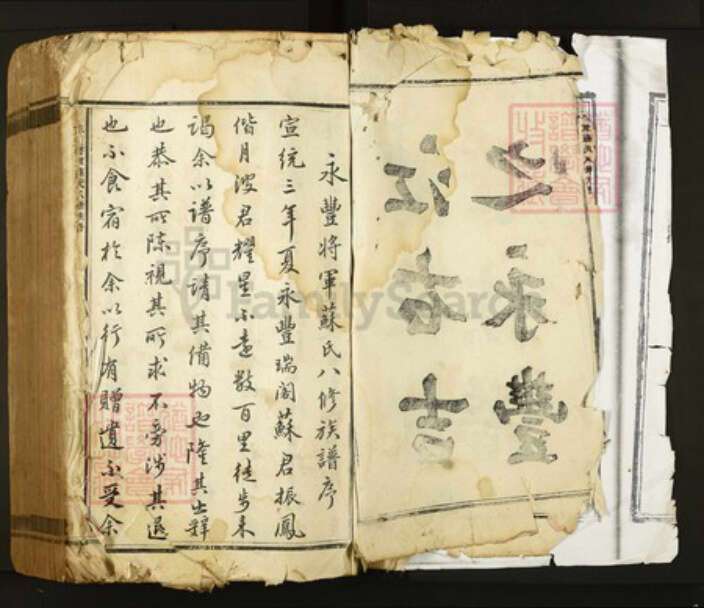 之永豐
江右吉
永豐將軍蘇氏八修族譜序
宣統三年夏永豐瑞閣蘇君振鳳
偕月波君耀星不遠數百里徒步来
謁余以譜序請其備物也隆其出辞
也恭其所陈視其所求不旁涉其退
也不食宿於余以行有贈遺不受余
FamilySearch